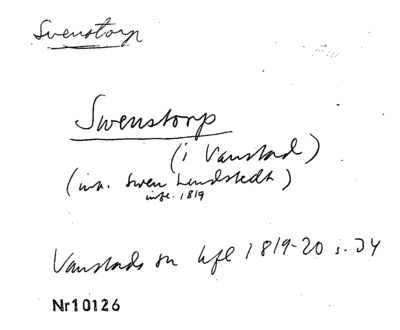 Swenstorp
Swenstorp
(i Vanstad)
(inv. Swen Lundstedt)
infl. 1819
Vanstads sn hfl 1819-20 s. 74
Nr10126